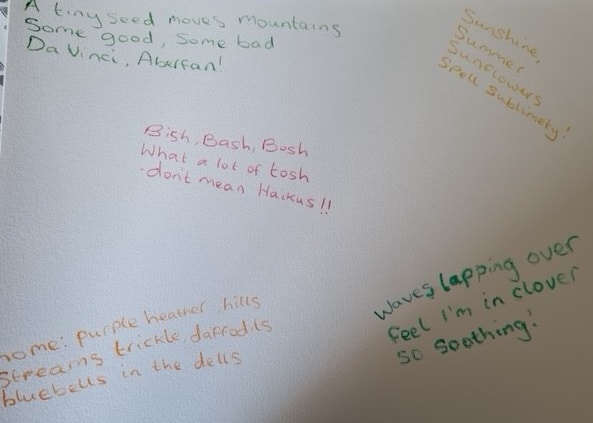 A tiny seed moves mountains
Some good, some bad
Da Vinci, Aberfan!
Sunshine,
Summer
Sunflowers
Spell Sublimety!
Bish, Bash, Bosh
What a lot of tosh
-don't mean Haikus!!
Waves lapping over
Feel I'm in clover
so soothing!
home: purple heather hills
Streams trickle, daffodils
bluebells in the dells